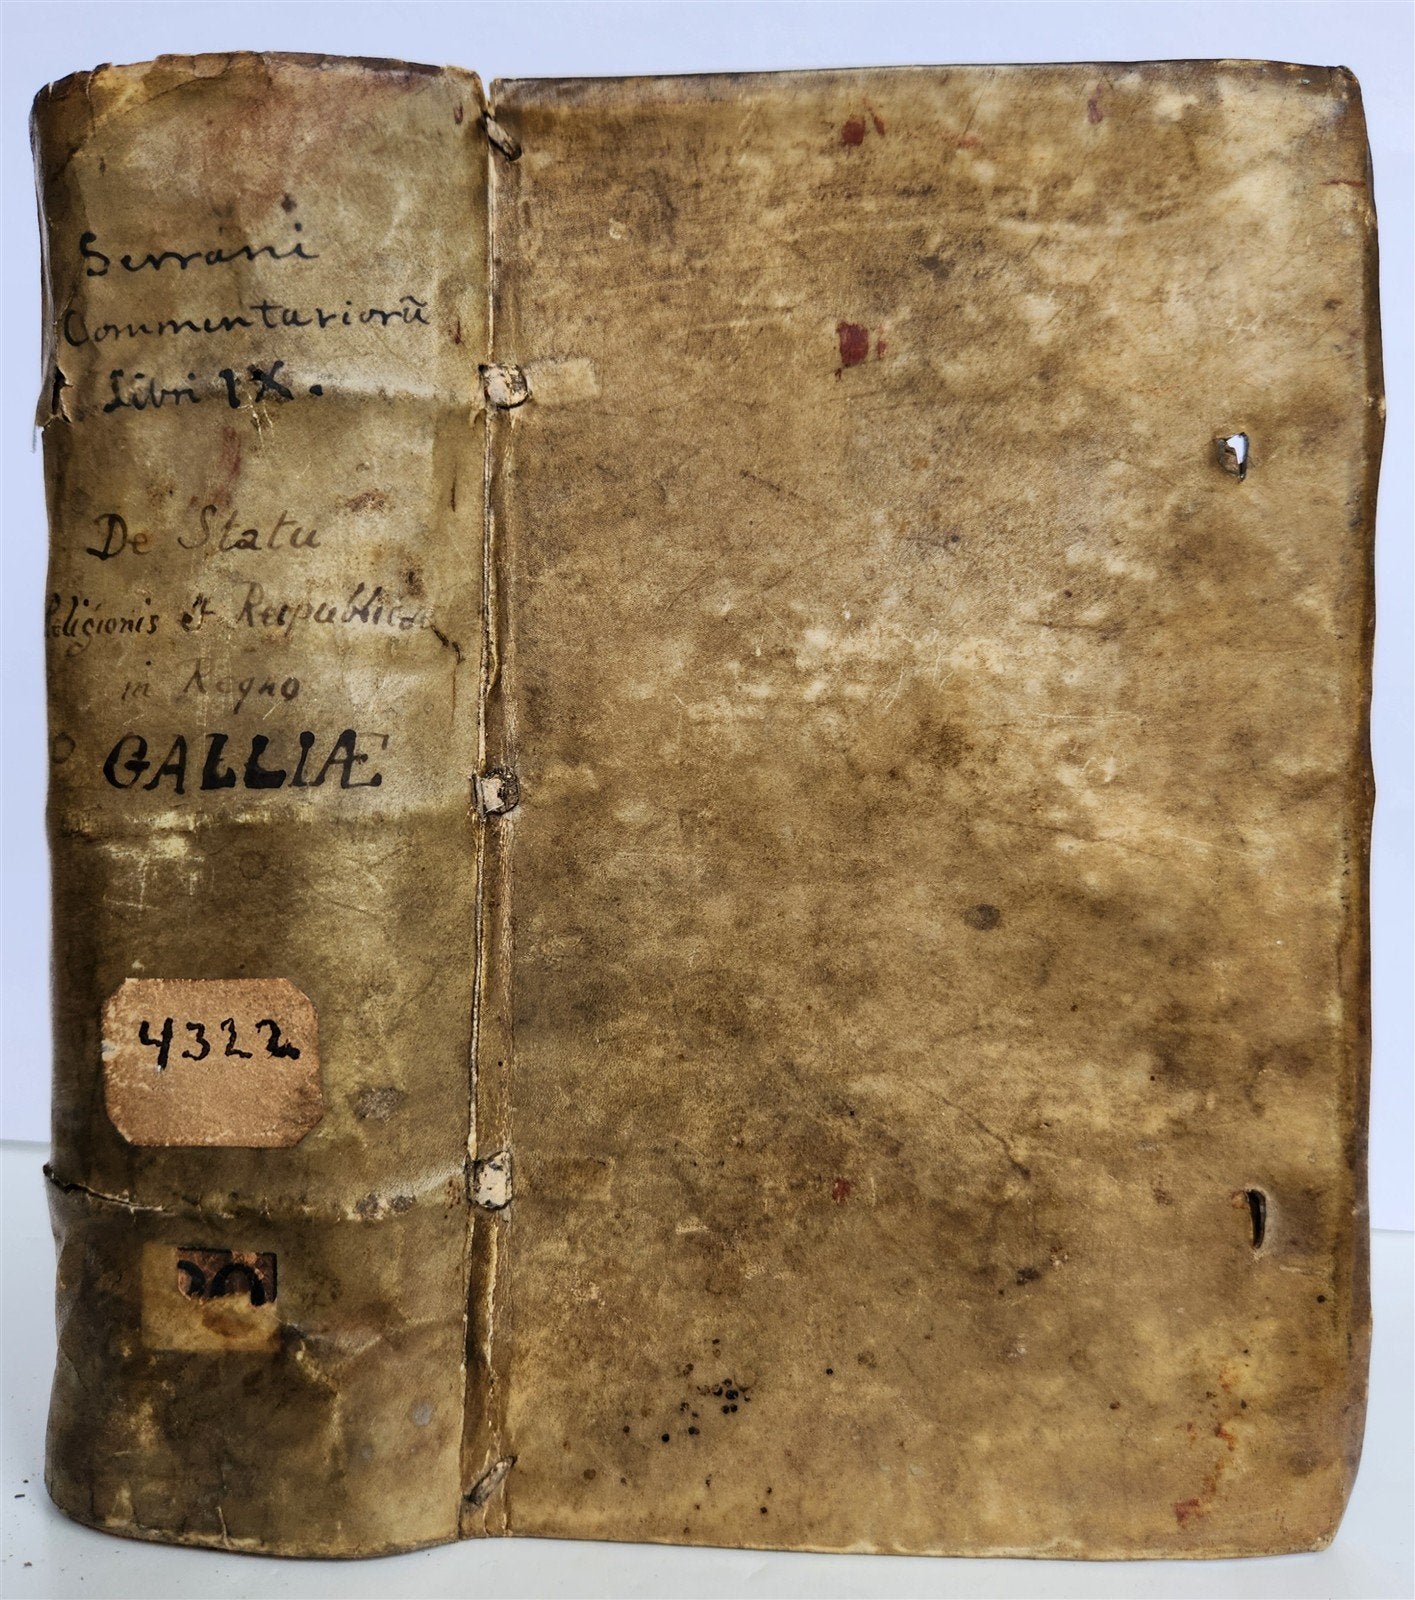 Serrani
Commentariorũ
Libri IX.
De Statu
Religionis et Reipublicæ
in Regno
GALLIÆ
4322